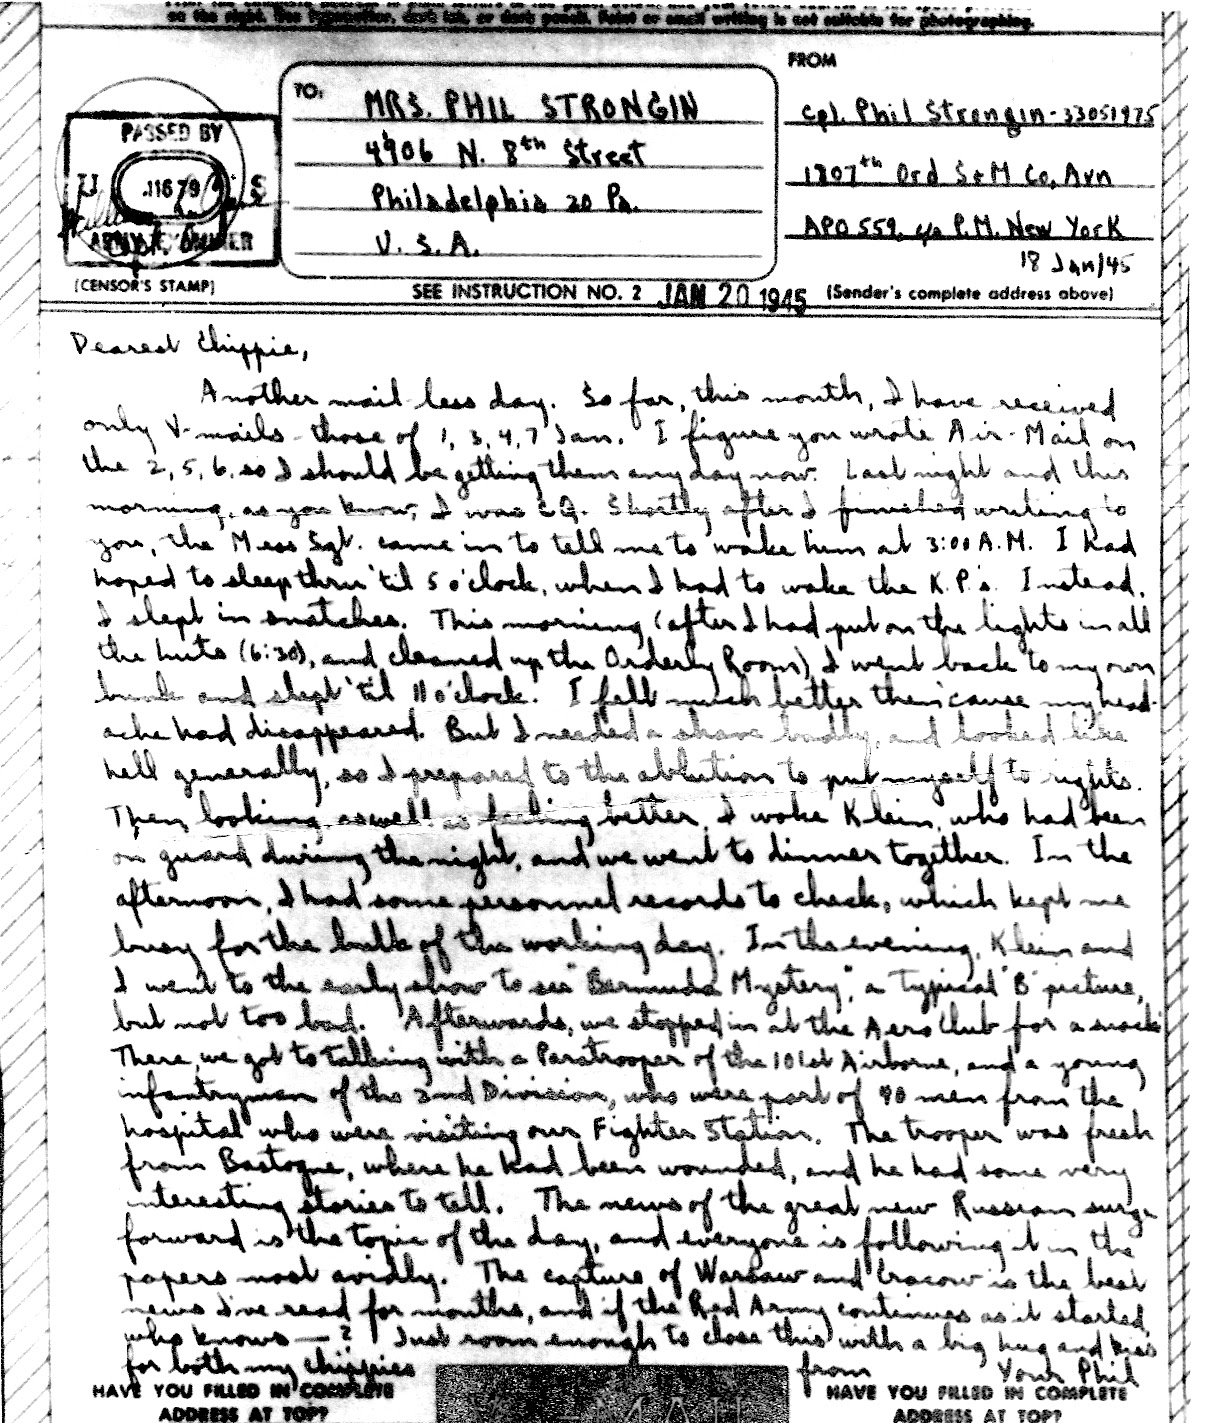 so the right. Use typewriter, dark ink, or dark pencil. Faint or small writing is not suitable for photographing.
FROM
TO:
MRS. PHIL STRONGIN
4906 N. 8th Street
Philadelphia 20 Pa.
U.S.A.
Cpl. Phil Strongin - 33051975
1807th Ord S+M Co, Avn
APO 559, c/o P.M. New York
18 Jan/45
PASSED BY
U S
11679
ARMY EXAMINER
(CENSOR'S STAMP)
SEE INSTRUCTION NO. 2
JAN 20 1945
(Sender's complete address above)
Dearest Chippie,
Another mail-less day. So far, this month, I have received
only V-mails - those of 1, 3, 4, 7 Jan. I figure you wrote Air-Mail on
the 2, 5, 6, so I should be getting them any day now. Last night and this
morning, as you know, I was CQ. Shortly after I finished writing to
you, the Mess Sgt. came in to tell me to wake him at 3:00 A.M. I had
hoped to sleep thru 'til 5 o'clock, when I had to wake the K.P.s. Instead,
I slept in snatches. This morning (after I had put on the lights in all
the huts (6:30), and cleaned up the Orderly Room) I went back to my own
bunk and slept 'til 11 o'clock. I felt much better then 'cause my head-
ache had disappeared. But I needed a shave badly, and looked like
hell generally, so I prepared to the ablution to put myself to rights.
Then, looking as well as feeling better, I woke Klein, who had been
on guard during the night, and we went to dinner together. In the
afternoon, I had some personnel records to check, which kept me
busy for the bulk of the working day. In the evening, Klein and
I went to the early show to see "Bermuda Mystery", a typical 'B' picture,
but not too bad. Afterwards, we stopped in at the Aero Club for a snack
There, we got to talking with a Paratrooper of the 101st Airborne, and a young
infantryman of the 2nd Division, who were part of 90 men from the
hospital who were visiting our Fighter Station. The trooper was fresh
from Bastogne, where he had been wounded, and he had some very
interesting stories to tell. The news of the great new Russian surge
forward is the topic of the day, and everyone is following it in the
papers most avidly. The capture of Warsaw and Cracow is the best
news I've read for months, and if the Red Army continues as it started,
who knows — ? Just room enough to close this with a big hug and kiss
for both my Chippies from Your Phil
HAVE YOU FILLED IN COMPLETE
ADDRESS AT TOP?
V-MAIL
HAVE YOU FILLED IN COMPLETE
ADDRESS AT TOP?